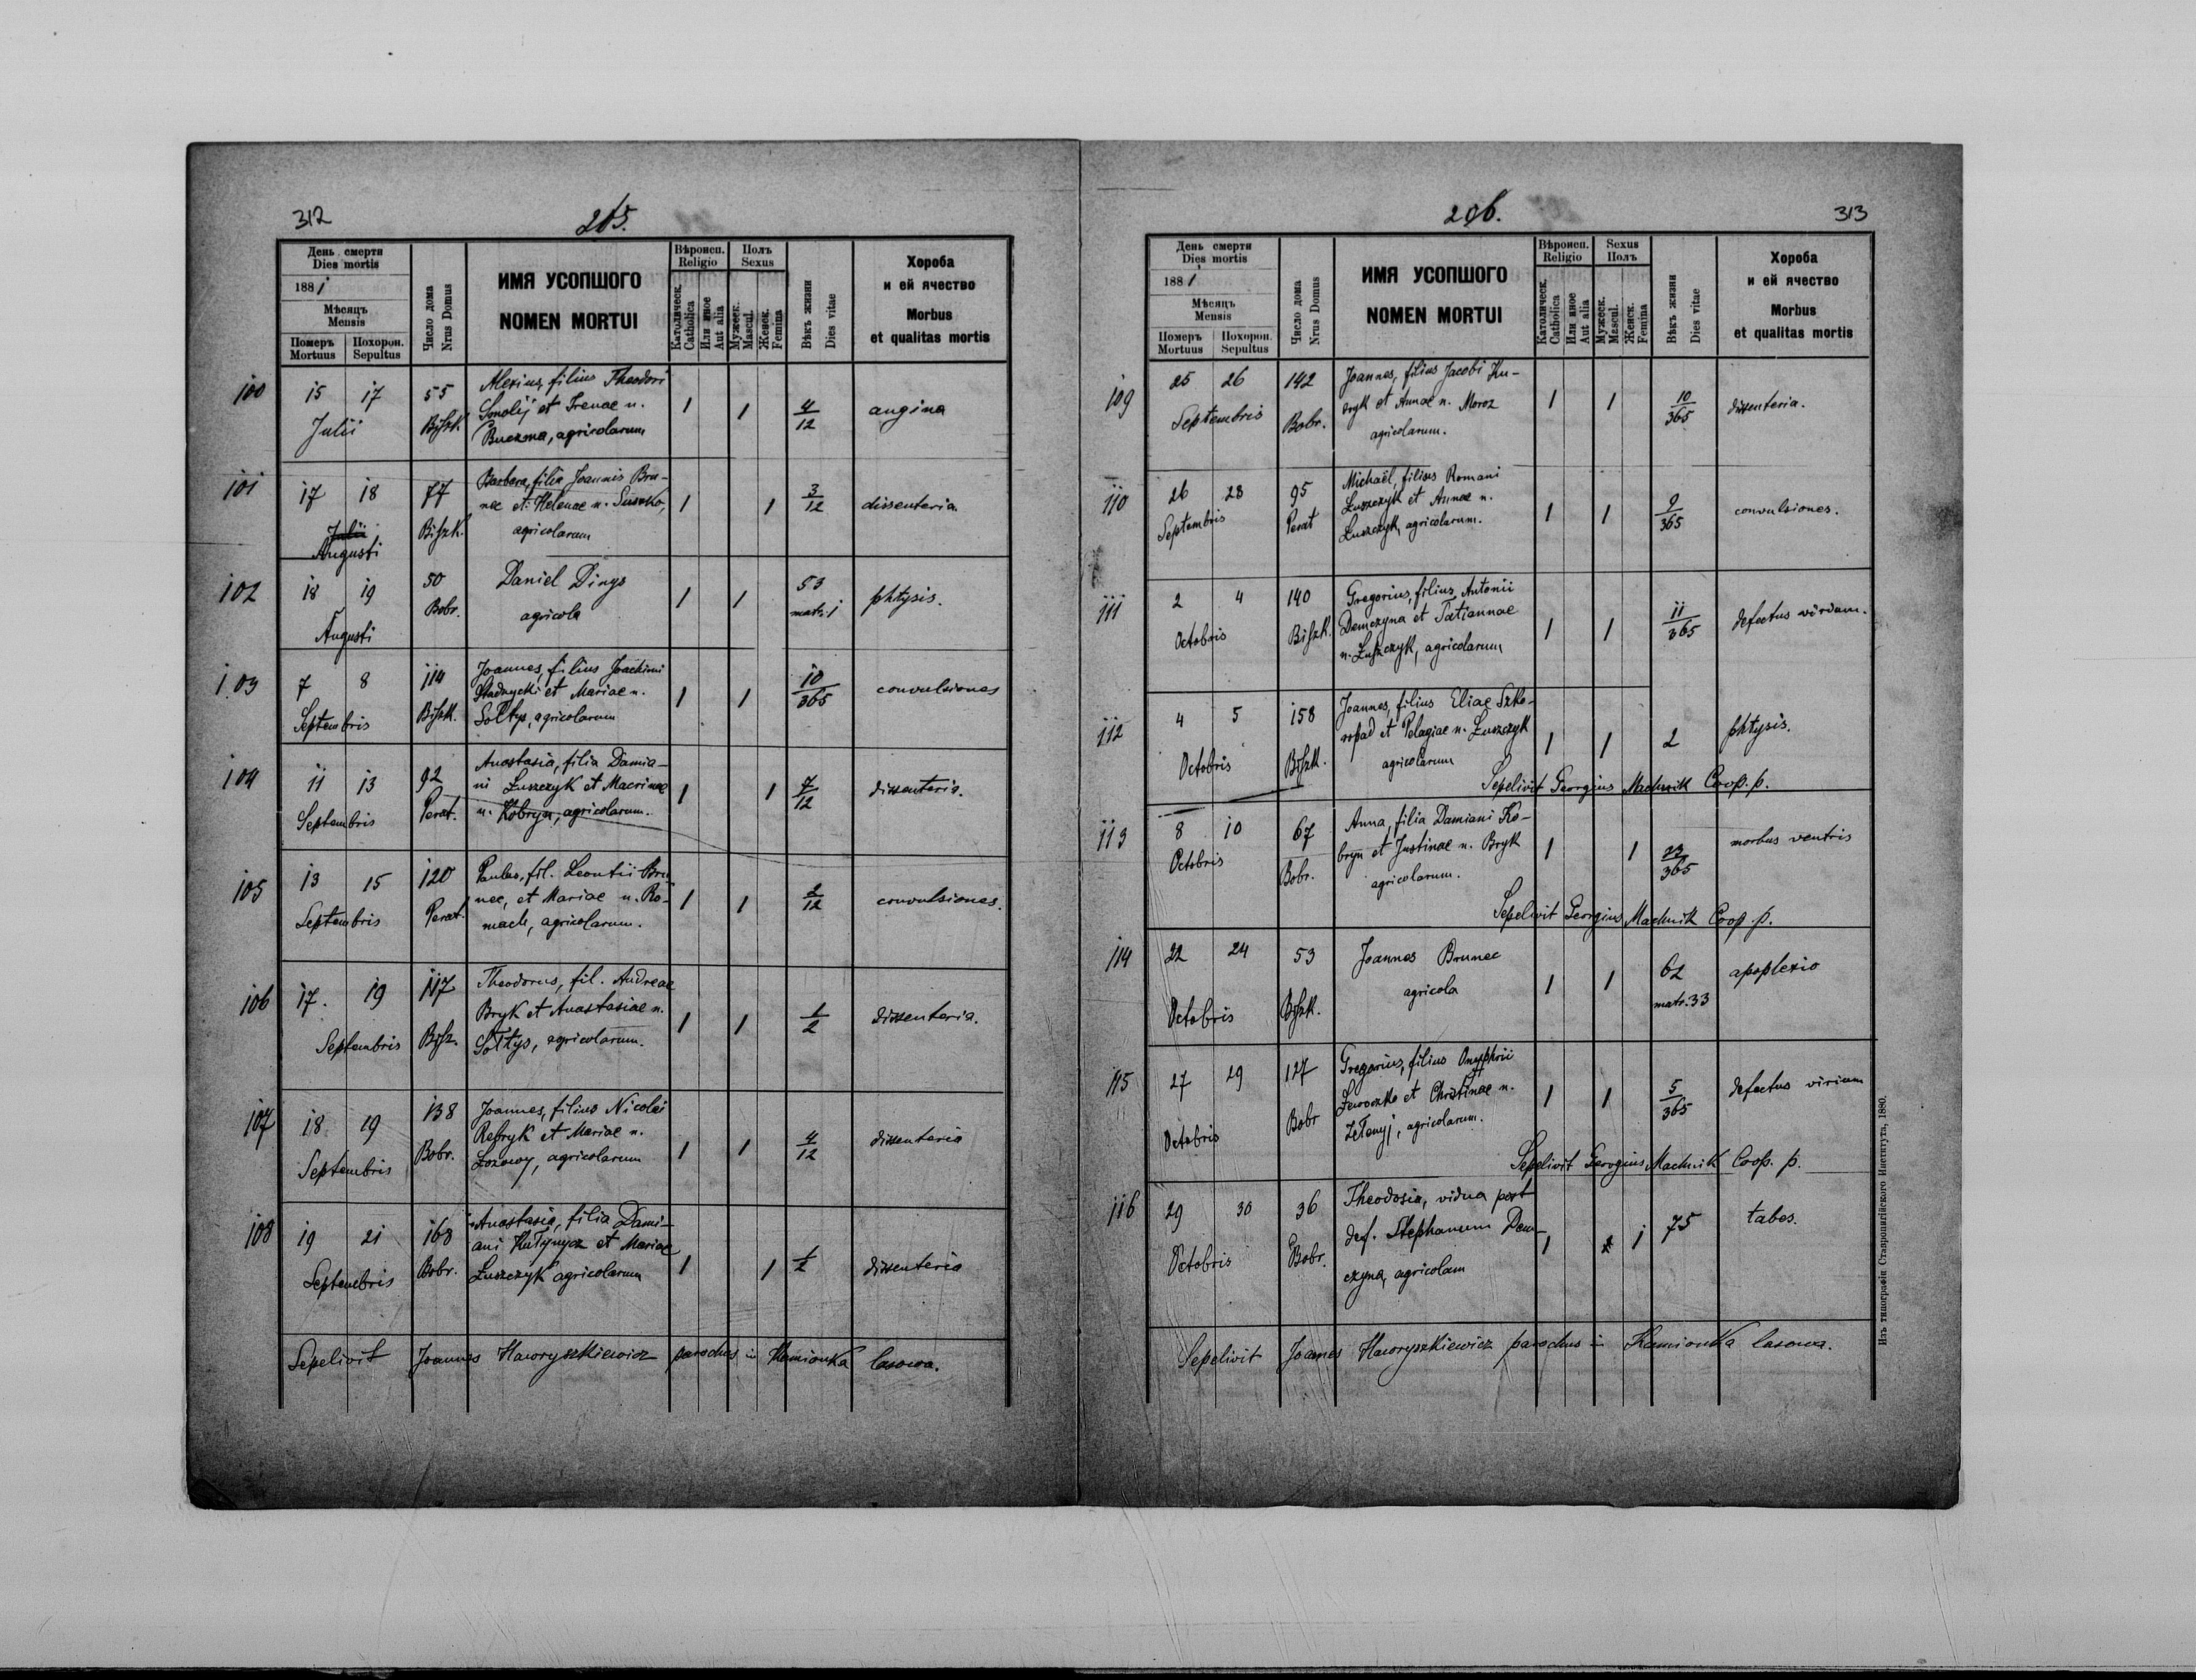 312
265.
День смерти
Dies mortis
1881
Мѣсяцъ
Mensis
Померъ
Mortuus
Похорон.
Sepultus
Число дома
Nrus Domus
ИМЯ УСОПШОГО
NOMEN MORTUI
Вѣроисп.
Religio
Католическ.
Catholica
Или иное
Aut alia
Полъ
Sexus
Мужеск.
Mascul.
Женск.
Femina
Вѣкъ жизни
Dies vitae
Хороба
и ей ячество
Morbus
et qualitas mortis
100 15 17 55 Alexius, filius Theodori
Smolij et Irenae n. 1 1 4/12 angina
Julii Biszk. Buczma, agricolarum
101 17 18 77 Barbara, filia Joannis Bru-
nec et Helenae n. Suszko, 1 1 3/12 dissenteria.
Julii Biszk. agricolarum
Augusti
102 18 19 50 Daniel Dinys 1 1 53 phtysis.
Augusti Bobr. agricola matr. 1
103 7 8 114 Joannes, filius Joachimi
Stadnycki et Mariae n. 1 1 10/365 convulsiones
Septembris Biszk. Soltys, agricolarum
104 11 13 92 Anastasia, filia Damia-
ni Łuszczyk et Macrinae 1 1 7/12 dissenteria.
Septembris Perat. n. Kobryn, agricolarum.
105 13 15 120 Paulus, fil. Leontii Bru-
nec, et Mariae n. Ro- 1 1 2/12 convulsiones.
Septembris Perat. mach, agricolarum.
106 17. 19 117 Theodorus, fil. Andreae
Bryk et Anastasiae n. 1 1 1/2 dissenteria.
Septembris Bisz. Sołtys, agricolarum.
107 18 19 138 Joannes, filius Nicolai
Rebryk et Mariae n. 1 1 4/12 dissenteria
Septembris Bobr. Łozowy, agricolarum
108 19 21 168 Anastasia, filia Dami-
ani Hułynycz et Mariae 1 1 1/2 dissenteria
Septembris Bobr. Łuszczyk agricolarum
Sepelivit Joannes Haworyszkiewicz parochus in Kamionka lasowa.
206.
313
День смерти
Dies mortis
1881
Мѣсяцъ
Mensis
Померъ
Mortuus
Похорон.
Sepultus
Число дома
Nrus Domus
ИМЯ УСОПШОГО
NOMEN MORTUI
Вѣроисп.
Religio
Католическ.
Catholica
Или иное
Aut alia
Sexus
Полъ
Мужеск.
Mascul.
Женск.
Femina
Вѣкъ жизни
Dies vitae
Хороба
и ей ячество
Morbus
et qualitas mortis
109 25 26 142 Joannes, filius Jacobi Ku-
dryk et Annae n. Moroz 1 1 10/365 dissenteria.
Septembris Bobr. agricolarum.
110 26 28 95 Michaël, filius Romani
Łuszczyk et Annae n. 1 1 9/365 convulsiones.
Septembris Perat Łuszczyk, agricolarum.
111 2 4 140 Gregorius, filius Antonii
Demczyna et Tatiannae 1 1 11/365 defectus virium.
Octobris Biszk. n. Łuszczyk, agricolarum
112 4 5 158 Joannes, filius Eliae Szko-
ropad et Pelagiae n. Łuszczyk 1 1 2 phtysis.
Octobris Biszk. agricolarum
Sepelivit Georgius Machnik Coop. p.
113 8 10 67 Anna, filia Damiani Ko-
bryn et Justinae n. Bryk 1 1 23/365 morbus ventris
Octobris Bobr. agricolarum.
Sepelivit Georgius Machnik Coop. p.
114 22 24 53 Joannes Brunec 1 1 62 apoplexio
Octobris Biszk. agricola matr. 33
115 27 29 127 Gregorius, filius Onyphrii
et Christinae n. 1 1 5/365 defectus virium
Octobris Bobr Zełenyj, agricolarum.
Sepelivit Georgius Machnik Coop. p.
116 29 30 36 Theodosia, vidua post
def. Stephanum Dem- 1 1 75 tabes.
Octobris Bobr. czyna, agricolam
Sepelivit Joannes Haworyszkiewicz parochus in Kamionka lasowa.
Изъ типографіи Ставропигійского Института, 1880.